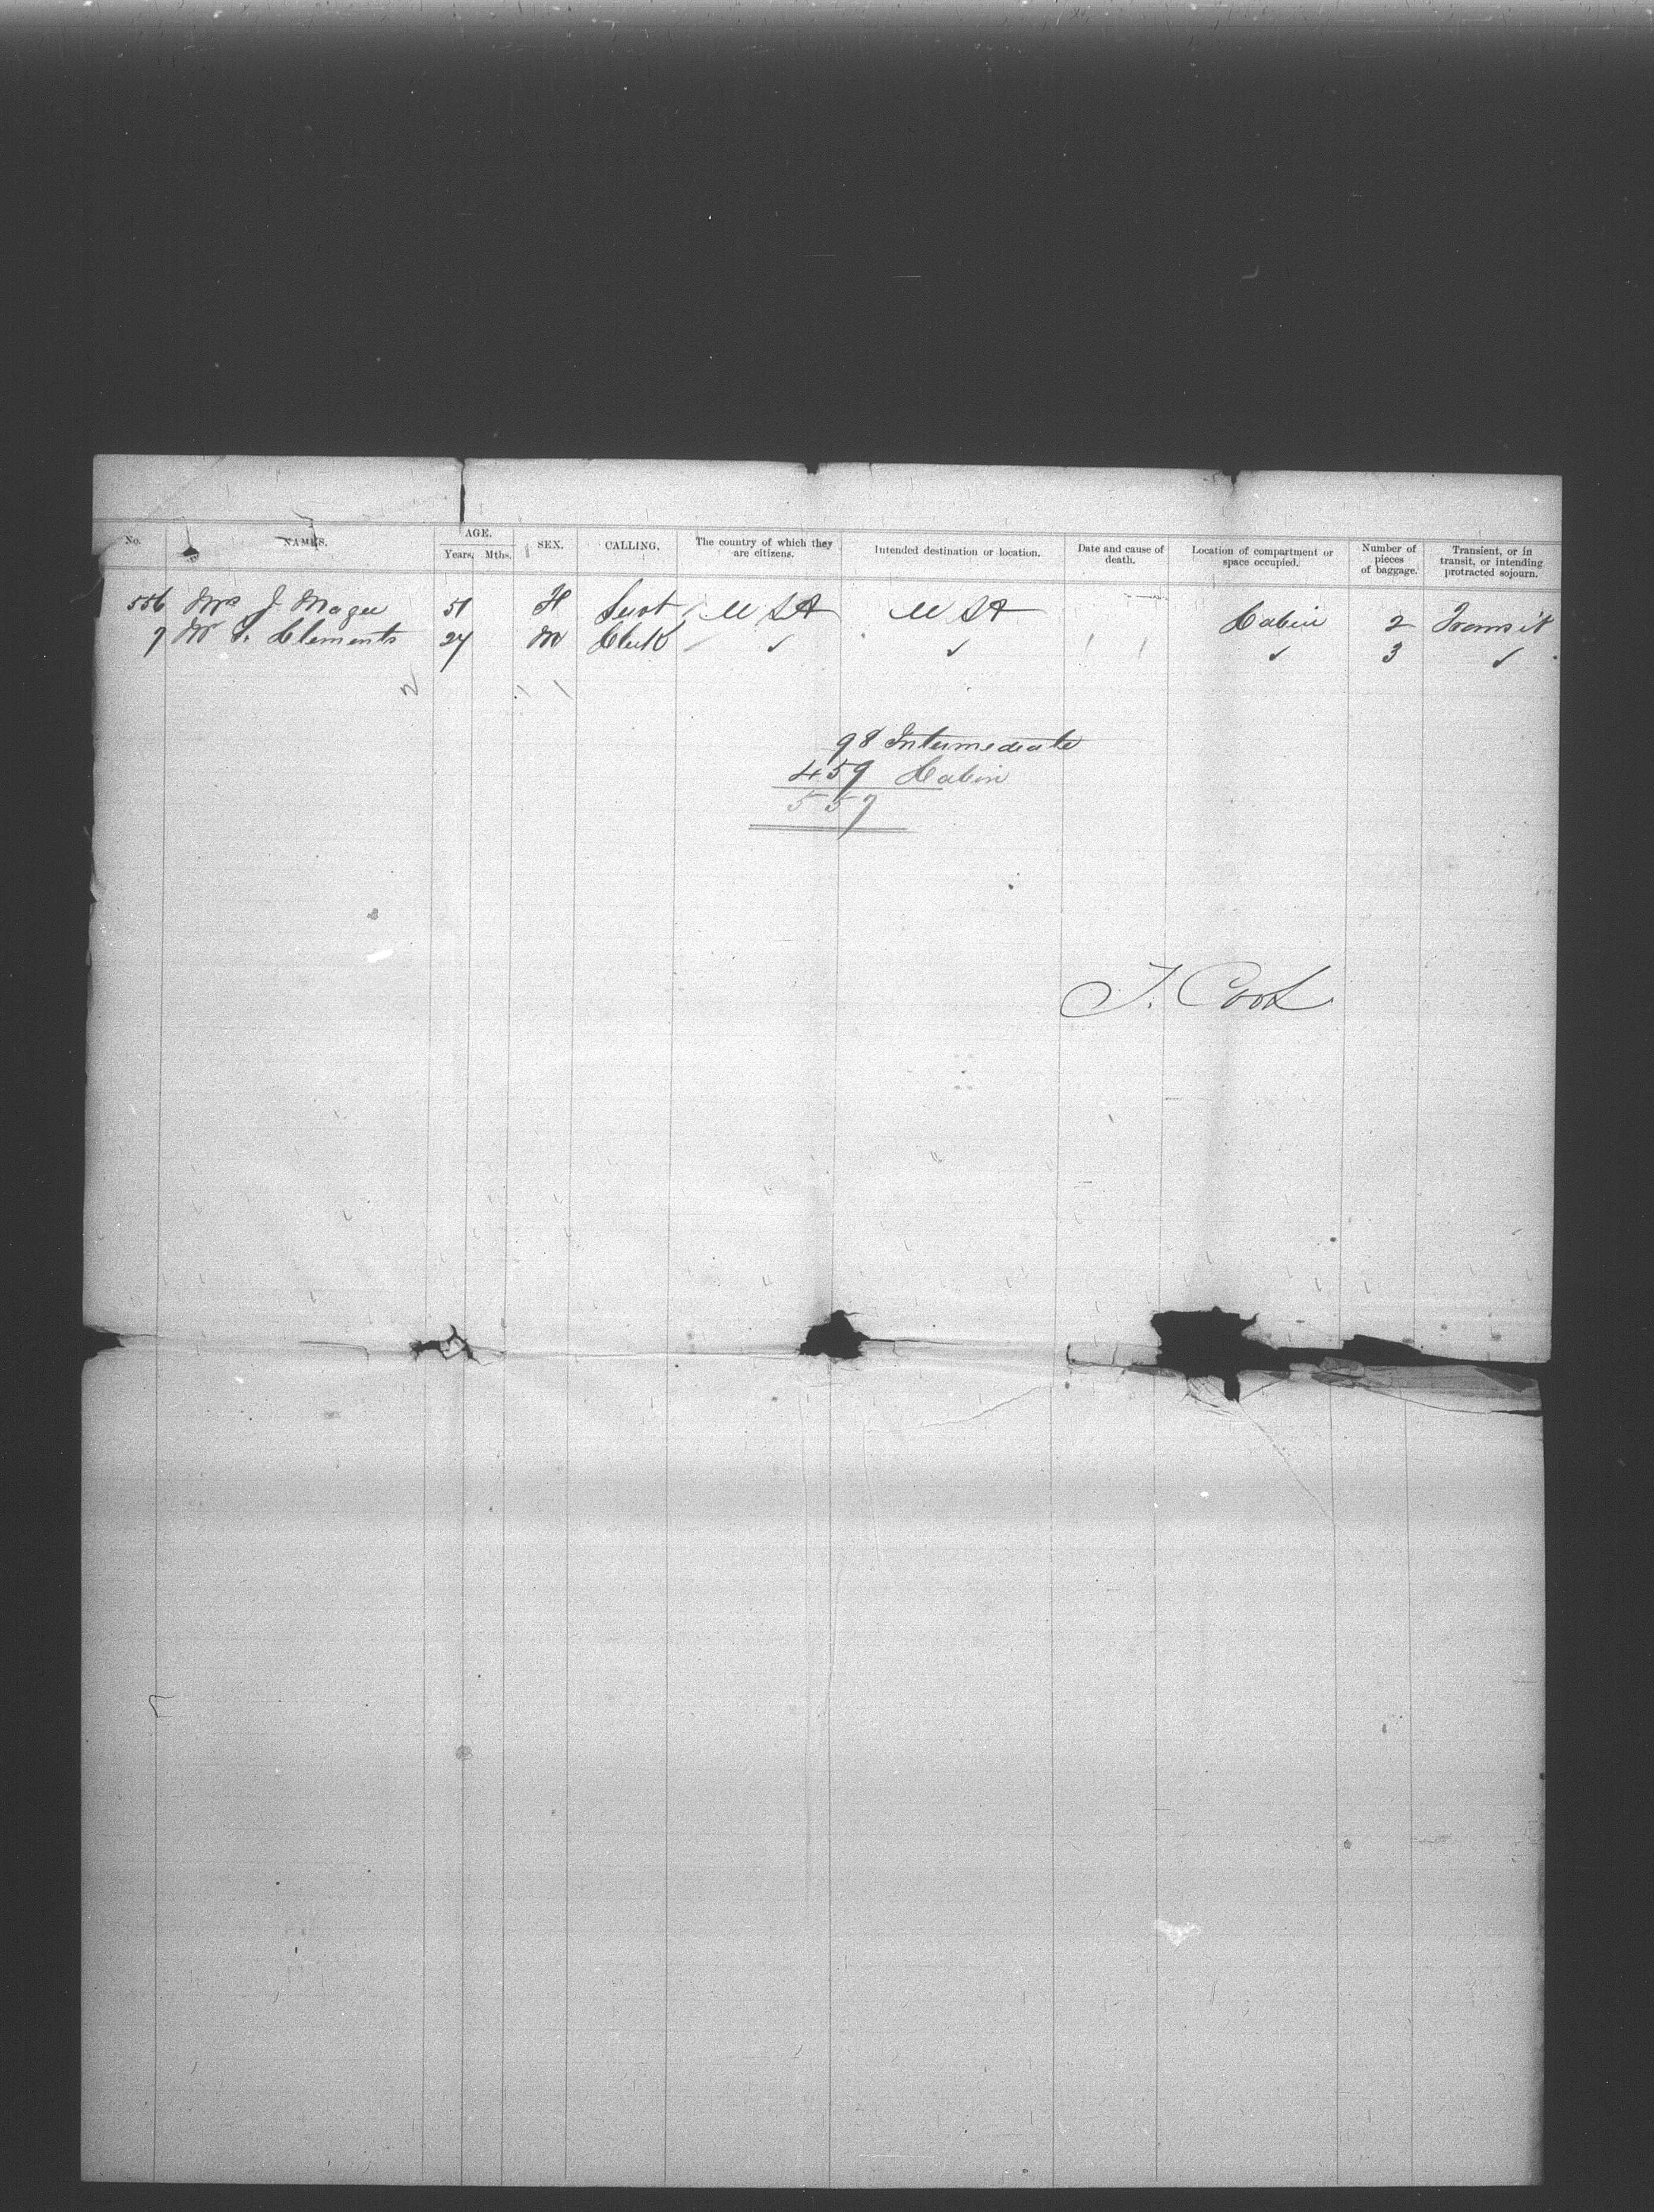 No. NAMES. AGE. Years. Mths. SEX. CALLING. The country of which they are citizens. Intended destination or location. Date and cause of death. Location of compartment or space occupied. Number of pieces of baggage. Transient, or in transit, or intending protracted sojourn.
556 Mrs J. Magee 51 F Servt U S A U S A Cabin 2 Transit
7 Mr F. Clements 27 M Clerk ✓ ✓ ✓ 3 ✓
2
98 Intermediate
459 Cabin
557
T. Cook